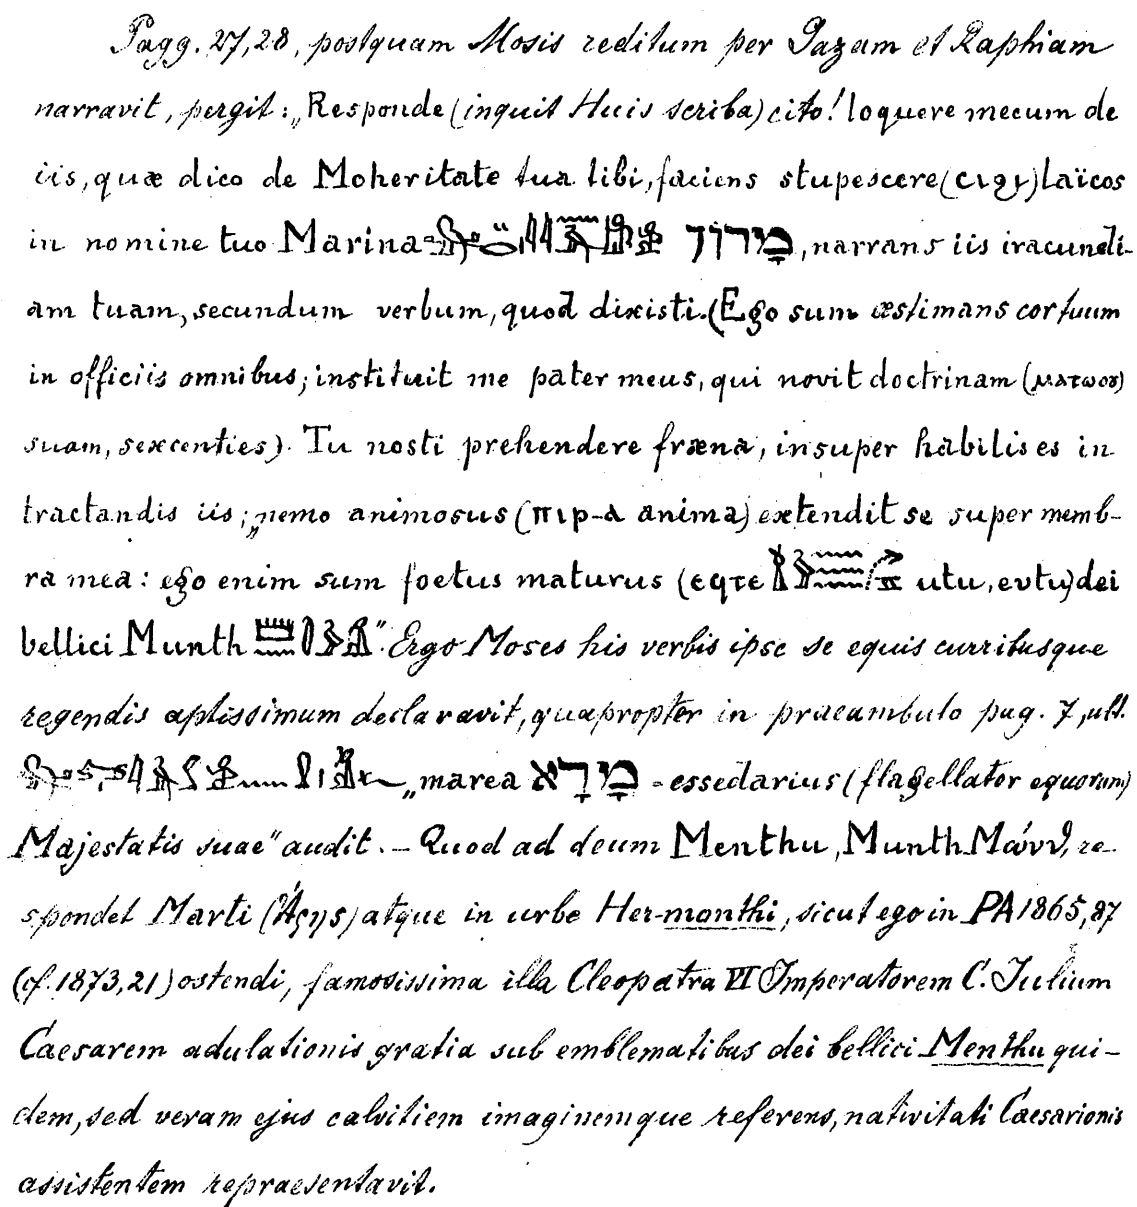 Pagg. 27, 28, postquam Mosis reditum per Gazam et Raphiam
narravit, pergit: „Responde (inquit Huis scriba) cito! loquere mecum de
iis, quæ dico de Moheritate tua tibi, faciens stupescere (ⲥⲓϩⲓ) laïcos
in nomine tuo Marina מָרוֹן, narrans iis iracundi-
am tuam, secundum verbum, quod dixisti. (Ego sum æstimans cor tuum
in officiis omnibus; instituit me pater meus, qui novit doctrinam (ⲙⲁⲧⲱⲟⲩ)
suam, sexcenties). Tu nosti prehendere fræna, insuper habilis es in
tractandis iis; „nemo animosus (ⲡⲓⲣ-ⲁ anima) extendit se super memb-
ra mea: ego enim sum foetus maturus (ⲉϥⲧⲉ utu, evtu) dei
bellici Munth ". Ergo Moses his verbis ipse se equis curribusque
regendis aptissimum declaravit, quapropter in praeambulo pag. 7, ult.
„marea מָרָא - essedarius (flagellator equorum)
Majestatis suae" audit. – Quod ad deum Menthu, Munth Μώνθ, re-
spondet Marti (Ἄρης) atque in urbe Her-monthi, sicut ego in PA 1865, 87
(cf. 1873, 21) ostendi, famosissima illa Cleopatra VI Imperatorem C. Julium
Caesarem adulationis gratia sub emblematibus dei bellici Menthu qui-
dem, sed veram ejus calvitiem imaginemque referens, nativitati Caesarionis
assistentem repraesentavit.